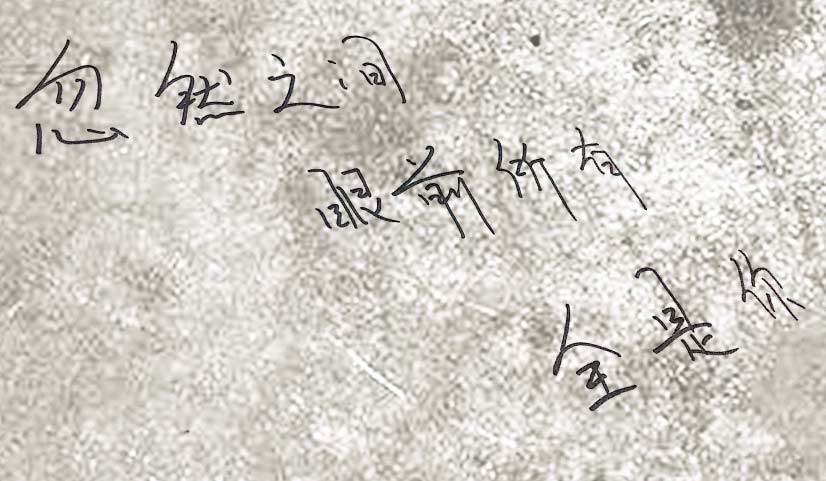 忽然之间
眼前所有
全是你